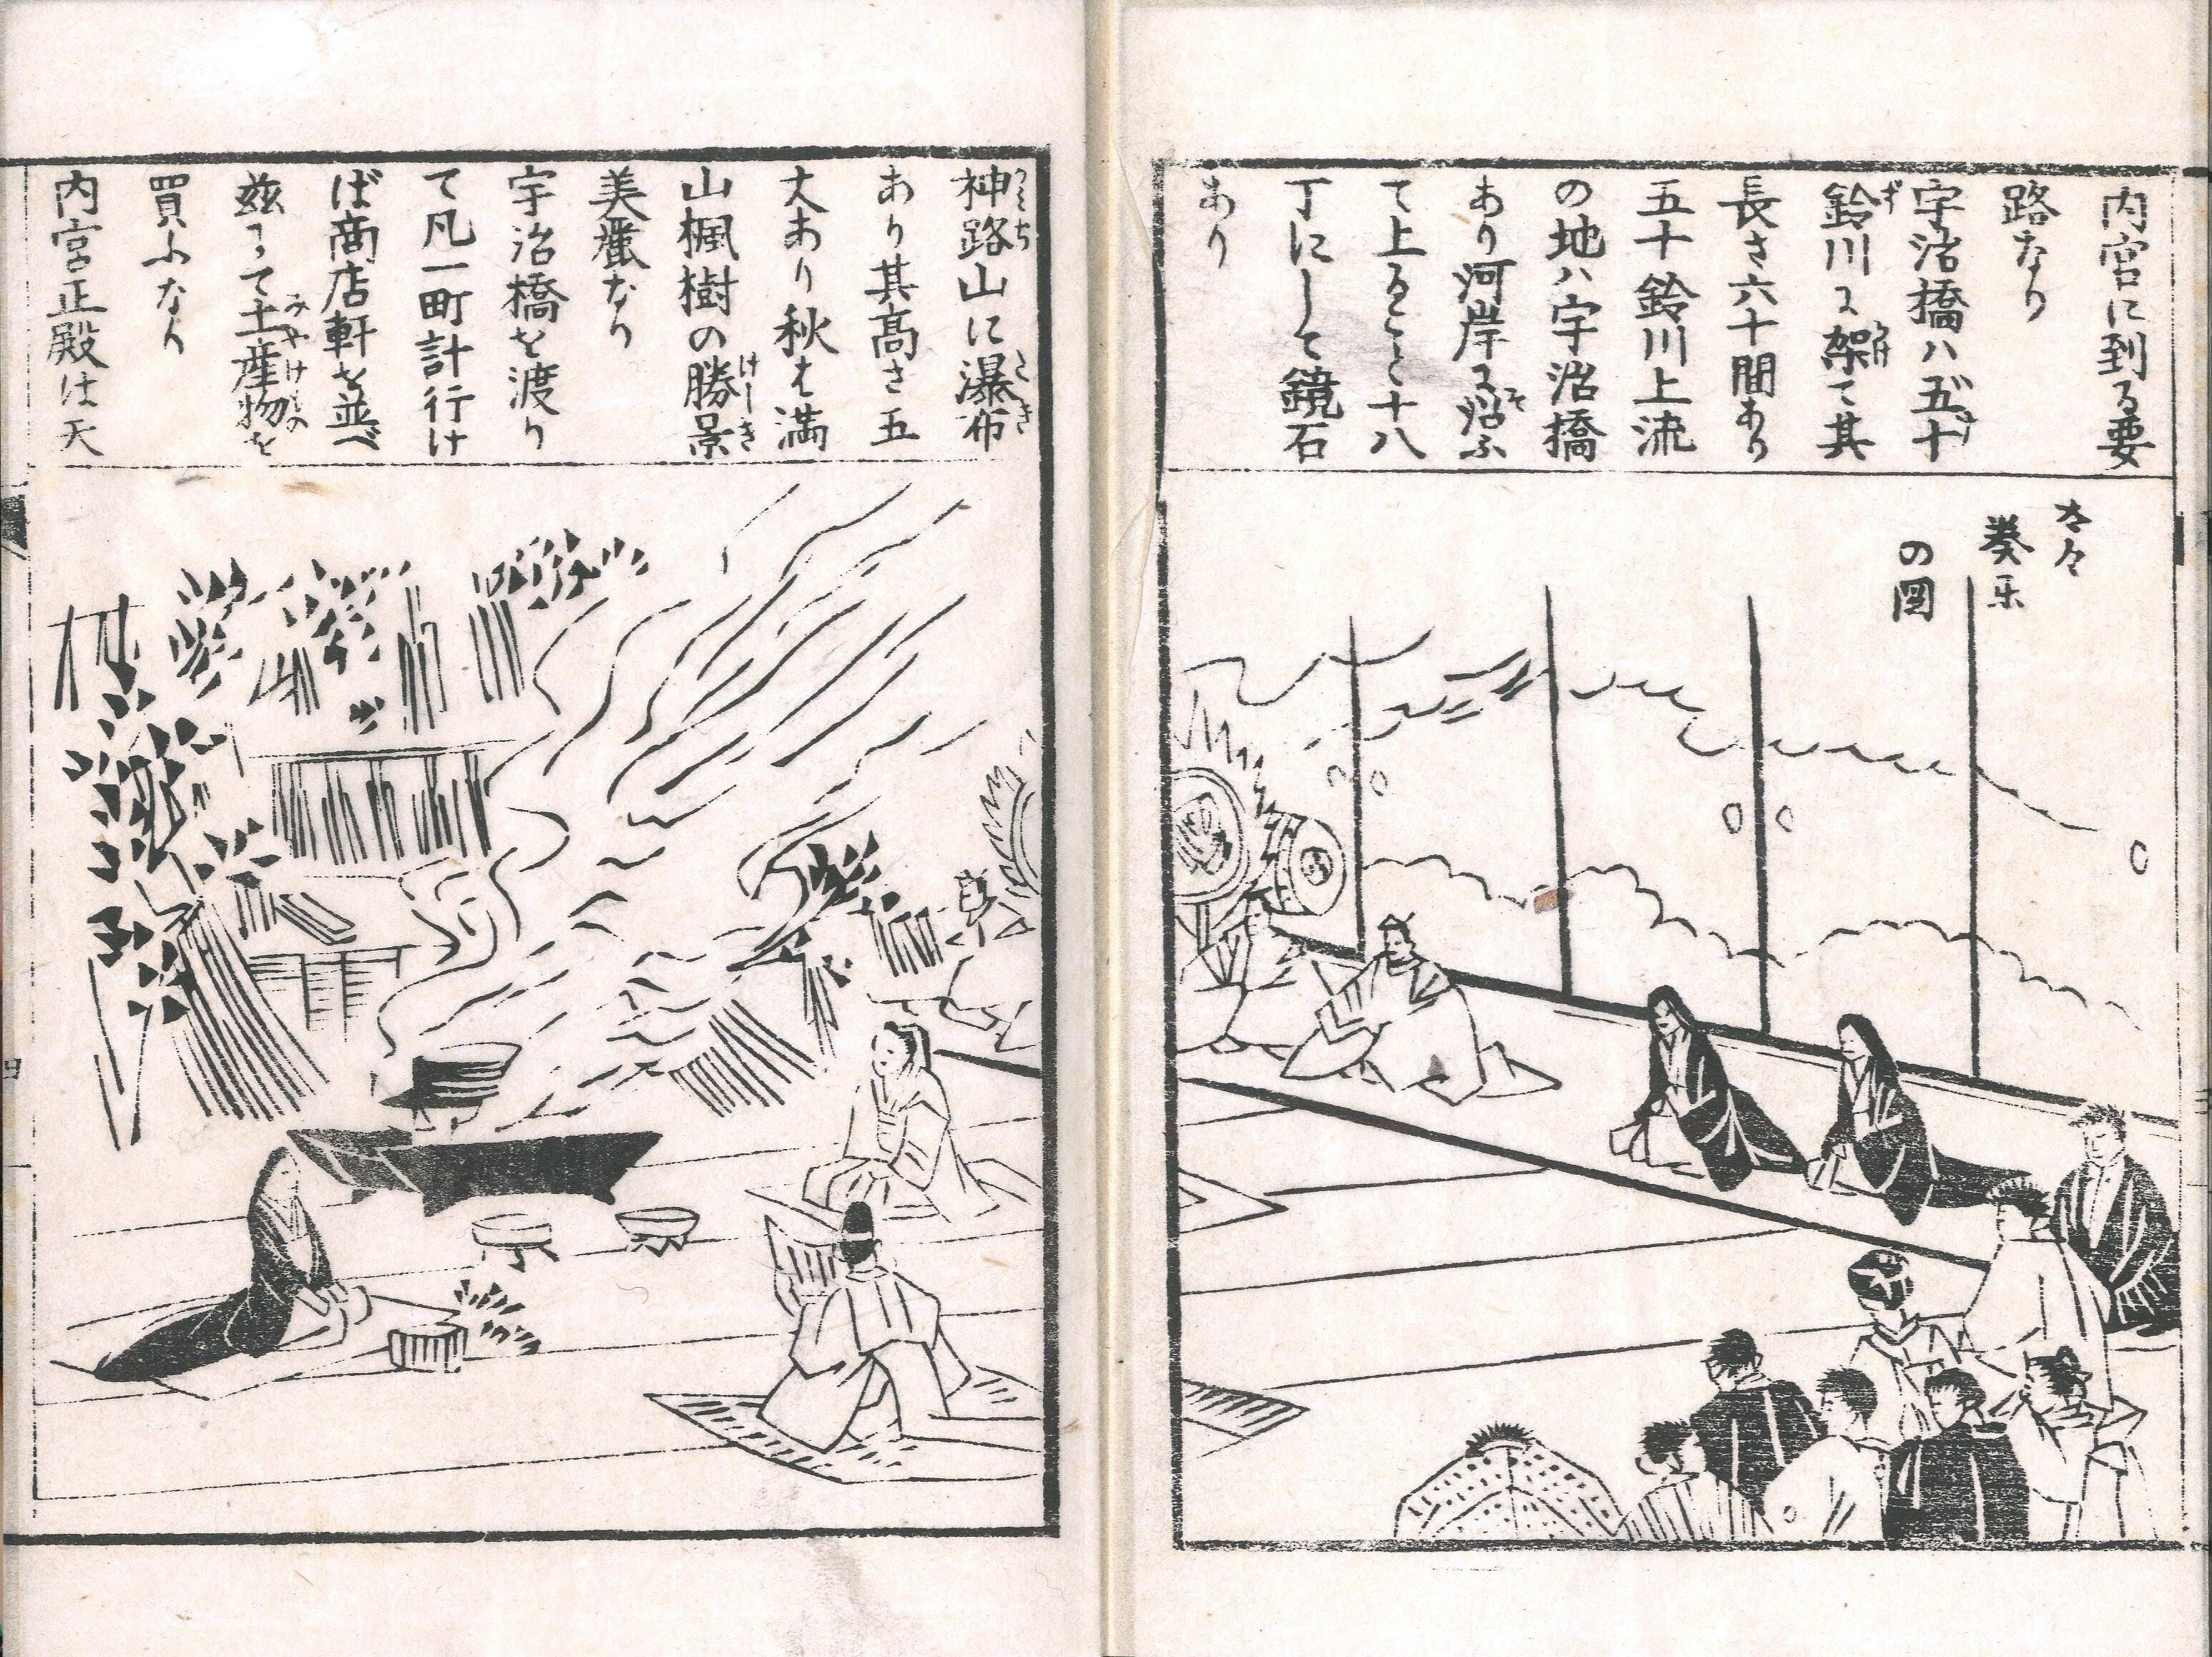 内宮に到る要
路なり
宇治橋ハ五十
鈴川に架て其
長さ六十間あり
五十鈴川上流
の地ハ宇治橋
あり河岸に沿ふ
て上ること十八
丁にして鏡石
あり
太々
奏楽
の図
神路山に瀑布
あり其高さ五
丈あり秋は満
山楓樹の勝景
美麗なり
宇治橋を渡り
て凡一町計行け
ば商店軒を並べ
茲にて土産物を
買ふなり
内宮正殿は天